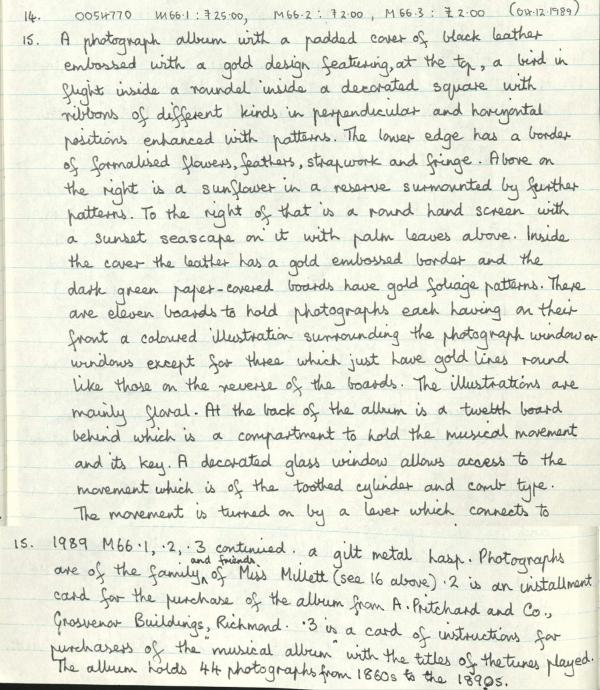 14. 0054770 M66.1: £25.00, M66.2: £2.00, M66.3: £2.00 (04.12.1989)
15. A photograph album with a padded cover of black leather
embossed with a gold design featuring, at the top, a bird in
flight inside a roundel inside a decorated square with
ribbons of different kinds in perpendicular and horizontal
positions enhanced with patterns. The lower edge has a border
of formalised flowers, feathers, strapwork and fringe. Above on
the right is a sunflower in a reserve surmounted by further
patterns. To the right of that is a round hand screen with
a sunset seascape on it with palm leaves above. Inside
the cover the leather has a gold embossed border and the
dark green paper-covered boards have gold foliage patterns. There
are eleven boards to hold photographs each having on their
front a coloured illustration surrounding the photograph window or
windows except for three which just have gold lines round
like those on the reverse of the boards. The illustrations are
mainly floral. At the back of the album is a twelfth board
behind which is a compartment to hold the musical movement
and its key. A decorated glass window allows access to the
movement which is of the toothed cylinder and comb type.
The movement is turned on by a lever which connects to
15. 1989 M66.1, .2, .3 continued. a gilt metal hasp. Photographs
are of the family and friends of Miss Millett (see 16 above) .2 is an installment
card for the purchase of the album from A. Pritchard and Co.,
Grosvenor Buildings, Richmond. .3 is a card of instructions for
purchasers of the "musical album" with the titles of the tunes played.
The album holds 44 photographs from 1860s to the 1890s.